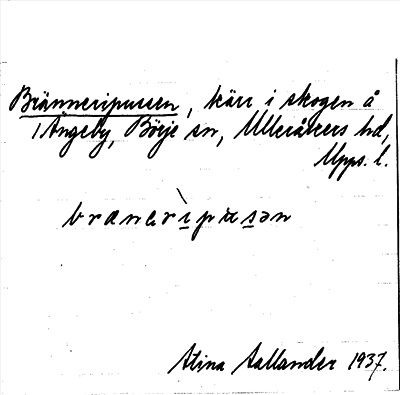 Bränneripussen, kärr i skogen å
Ängeby, Börje sn, Ulleråkers hd,
Upps. l.
brænerìpusən
Stina Sallander 1937.